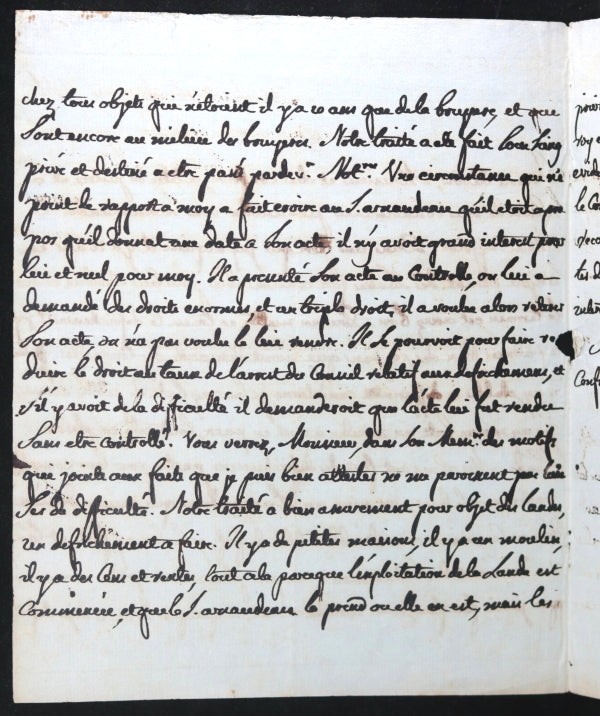 chez tous objets qui n'etoient il y a 10 ans que de la bruyere, et que
sont encore au milieu des bruyeres. Notre traité a eté fait sous seing
privé et destiné a etre passé pardevt Notre. Une circonstance qui n'a
point de rapport a moy a fait croire au S. arnaudeau qu'il etoit a pro
pos qu'il donnat une date a son acte, il n'y avoit grand interest pour
lui et nul pour moy. Il a presenté son acte au Controlle, on lui a
demandé des droits enormes, et un triple droit, il a voulu alors retirer
son acte, on n'a pas voulu le lui rendre. Il se pourvoit pour faire re
duire le droit au taux de l'arrest du Conseil relatif aux defrichemens, et
s'il y avoit de la difficulté il demanderoit que l'acte lui fut rendu
sans etre controllé. Vous verrez, Monsieur, dans son Memre des motifs
qui joints aux faits que je puis bien attester ne me paroissent pas lais
ser de difficulté. Notre traité a bien surement pour objet des Landes,
un defrichement a faire. Il y a de petites maisons, il y a un moulin,
il y a des Cens et rentes, tout cela parceque l'exploitation de la Lande est
Commencée, et que le S. arnaudeau la prend ou elle en est, mais les